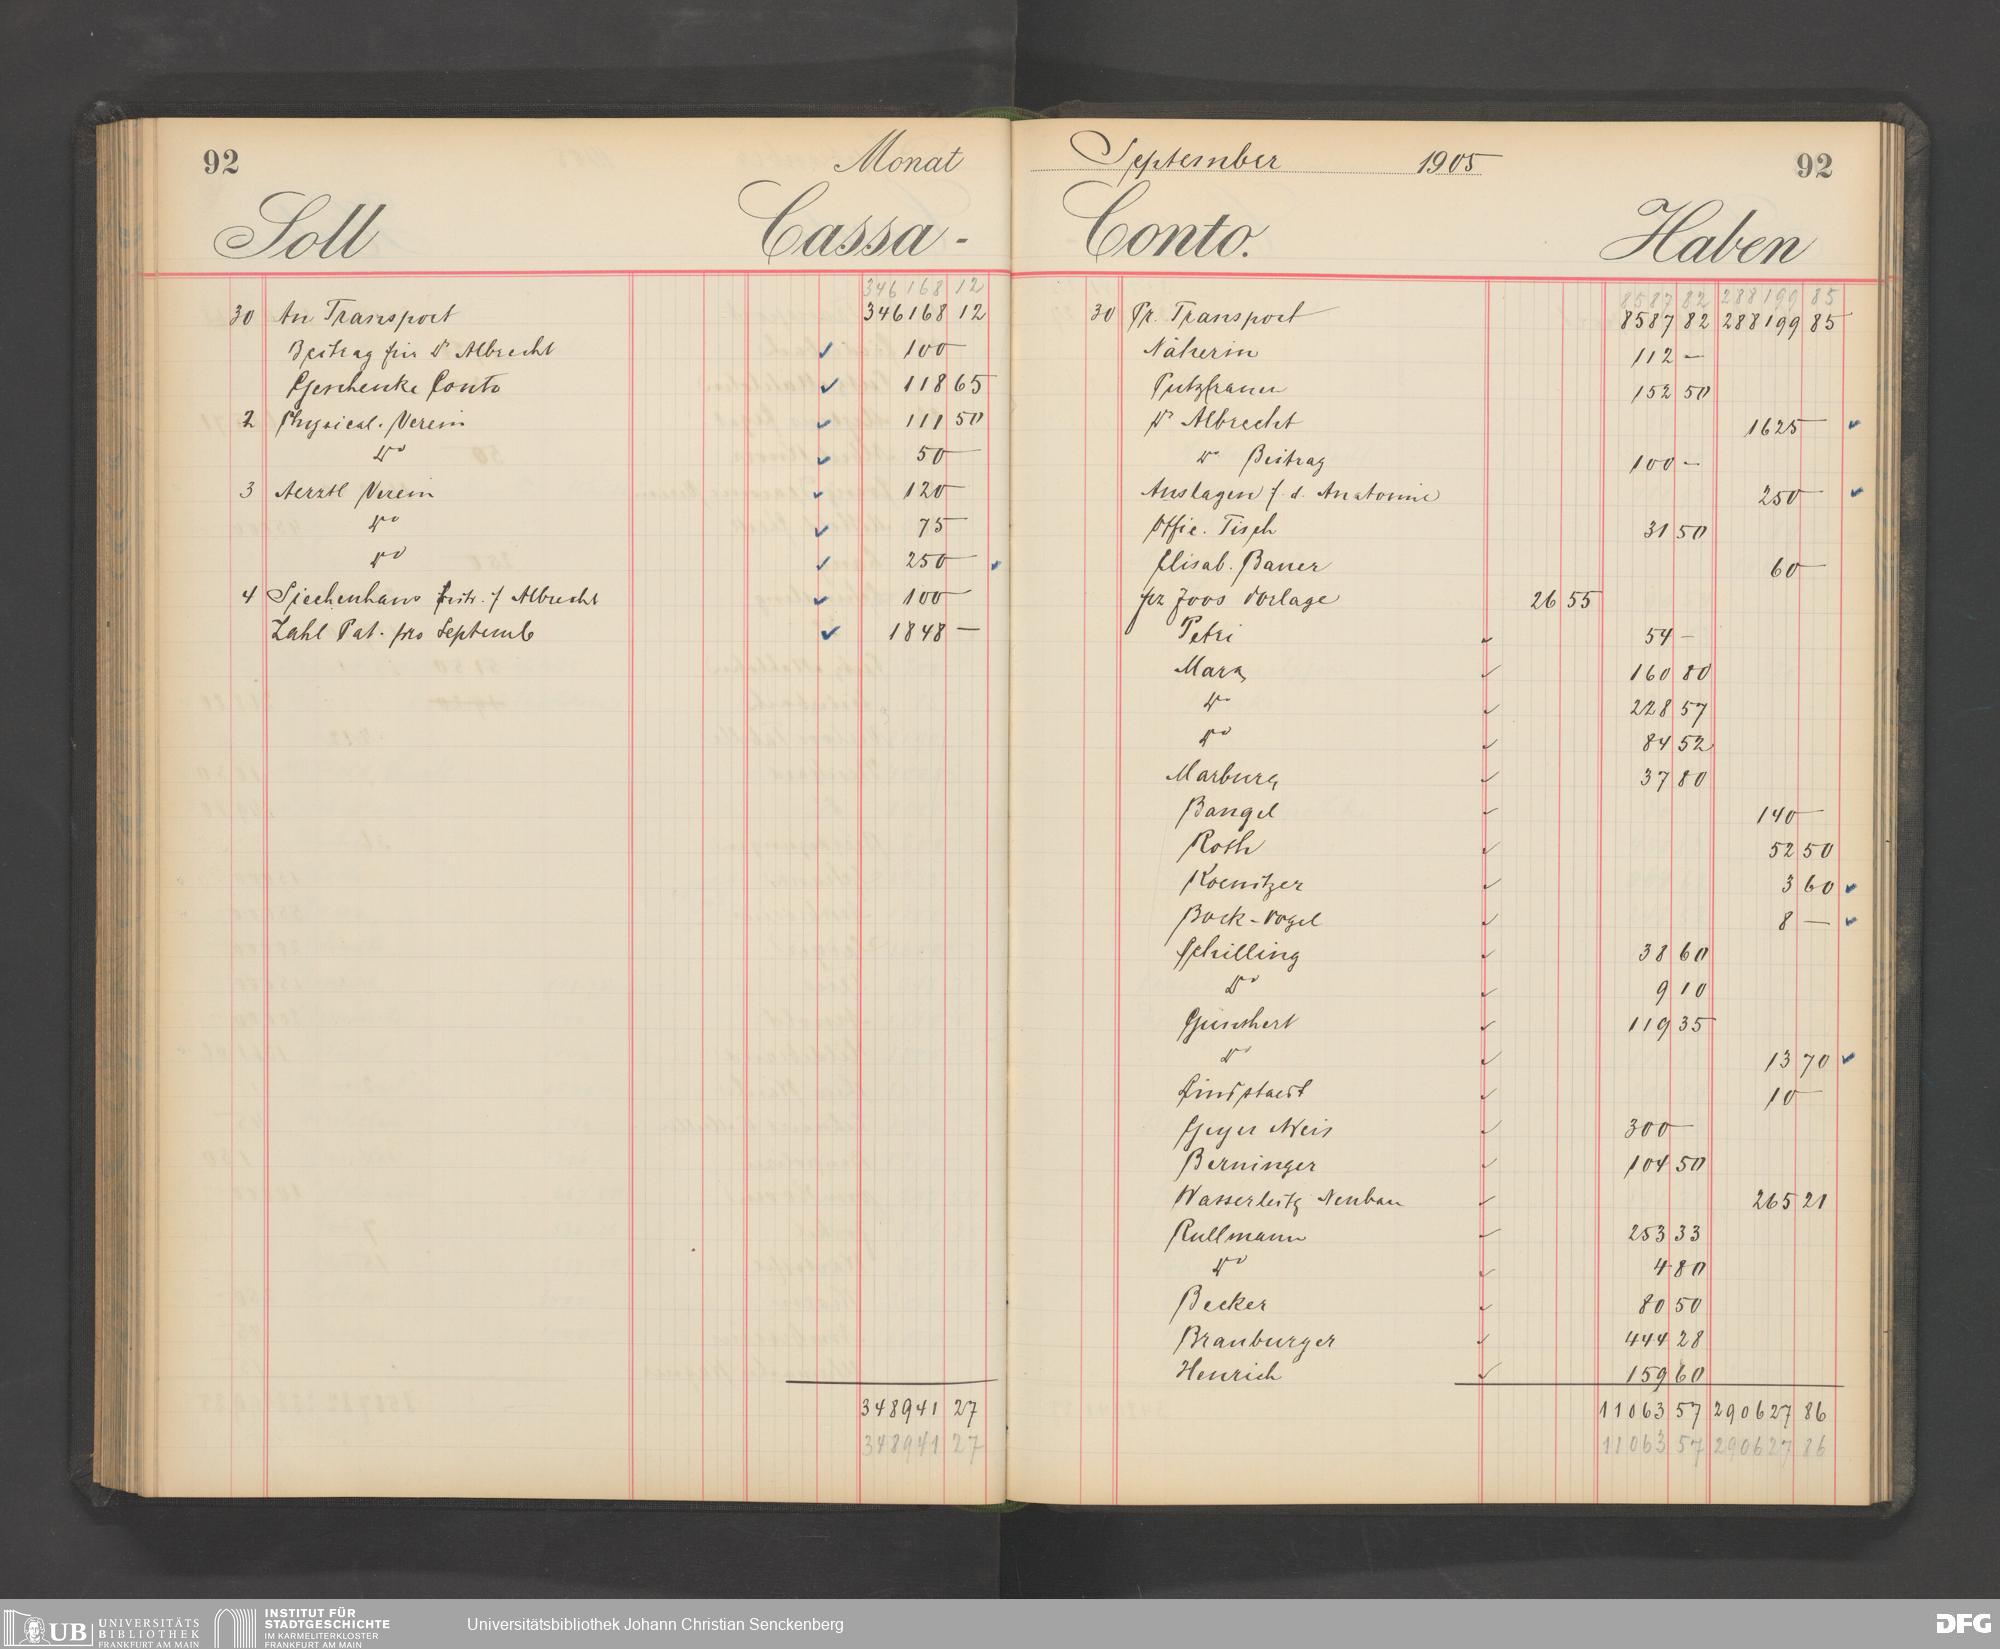 92
Monat
Soll
Cassa-
346168 12
30 An Transport 346168 12
Beitrag für Dr Albrecht 100 —
Geschenke Conto 118 65
2 Physical. Verein 111 50
do 50 —
3 Aerztl Verein 120 —
do 75 —
do 250 —
4 Siechenhaus f Albrecht 100 —
Zahl Pat. pro Septemb 1848 —
348941 27
348941 27
September 1905
92
Conto.
Haben
8587 82 288199 85
30 Pr. Transport 8587 82 288199 85
Näherin 112 —
Putzfrauen 152 50
Dr Albrecht 1625 —
do Beitrag 100 —
Auslagen f. d. Anatomie 250 —
Offic. Tisch 31 50
Elisab. Bauer 60 —
pr Joos Vorlage 26 55
Petri 54 —
Marx 160 80
do 228 57
do 84 52
Marburg 37 80
Bangel 140 —
Roth 52 50
Koenitzer 3 60
Bock-Vogel 8 —
Schilling 38 60
do 9 10
Günthert 119 35
do 13 70
Lindstaedt 10 —
Geyer Neis 300 —
Berninger 104 50
Wasserleitg Neubau 265 21
Rullmann 253 33
do 4 80
Becker 80 50
Branburger 444 28
Henrich 159 60
11063 57 290627 86
11063 57 290627 86
UB UNIVERSITÄTS
BIBLIOTHEK
FRANKFURT AM MAIN
INSTITUT FÜR
STADTGESCHICHTE
IM KARMELITERKLOSTER
FRANKFURT AM MAIN
Universitätsbibliothek Johann Christian Senckenberg
DFG